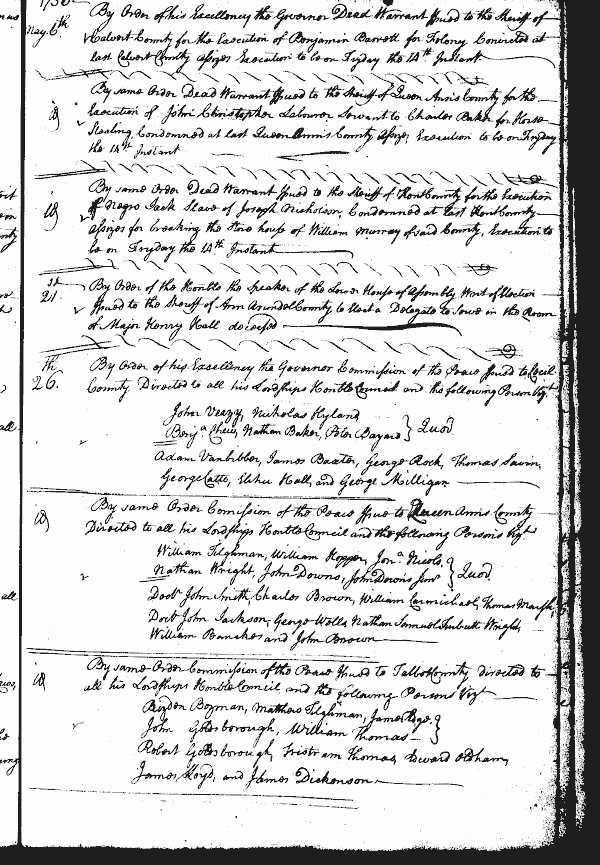 May 6th By Order of his Excellency the Governor Dead Warrant Issued to the Sheriff of
Calvert County for the Execution of Benjamin Barrett for Felony Convicted at
last Calvert County Assizes Execution to be on Fryday the 14th Instant
By same Order Dead Warrant Issued to the Sheriff of Queen Anns County for the
Execution of John Christopher Labourer Servant to Charles Baker for Horse
Stealing Condemned at last Queen Anns County Assizes, Execution to be on Fryday
the 14th Instant
By same Order Dead Warrant Issued to the Sheriff of Kent County for the Execution
of Negro Jack Slave of Joseph Nicholson, Condemned at last Kent County
Assizes for breaking the Store house of William Murray of said County, Execution to
be on Fryday the 14th Instant
21st By Order of the Honble the Speaker of the Lower House of Assembly Writ of Election
Issued to the Sheriff of Ann Arundel County to Elect a Delegate to Serve in the Room
of Major Henry Hall deceased
26th By Order of his Excellency the Governor Commission of the Peace Issued to Cecil
County Directed to all his Lordships Honble Council and the following Persons Vizt
John Veazy, Nicholas Hyland
Benja Nathan Baker, Peter Bayard } Quod
Adam Vanbibber, James Baxter, George Rock, Thomas Savin,
George Catto, Elihu Hall, and George Milligan
By same Order Comission of the Peace Issued to Queen Anns County
Directed to all his Lordships Honble Council and the following Persons Vizt
William Tilghman, William Hopper, Jona Nicols,
Nathan Wright, John Downs, John Downs Junr } Quod
Doctr John Smith, Charles Brown, William Carmichael, Thomas Marsh,
Doctr John Jackson, George Wells Nathan Samuel Turbutt Wright,
William Banckes and John Brown
By same Order Commission of the Peace Issued to Talbot County directed to
all his Lordships Honble Council and the following Persons Vizt
Risden Bozman, Matthew Tilghman, James Edge
John Goldsborough, William Thomas }
Robert Goldsborough, Tristram Thomas, Edward Oldham,
James Lloyd, and James Dickenson